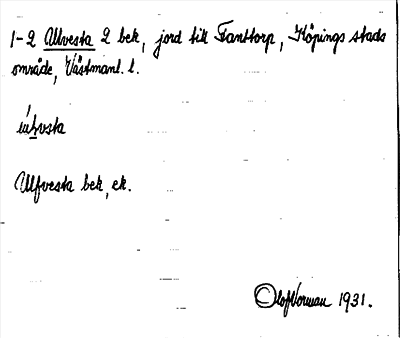 1-2 Ullvesta 2 bek, jord till Tansttorp, Köpings stads
område, Västmanl. l.
Ullfvesta bek, ek.
Olof Norman 1931.